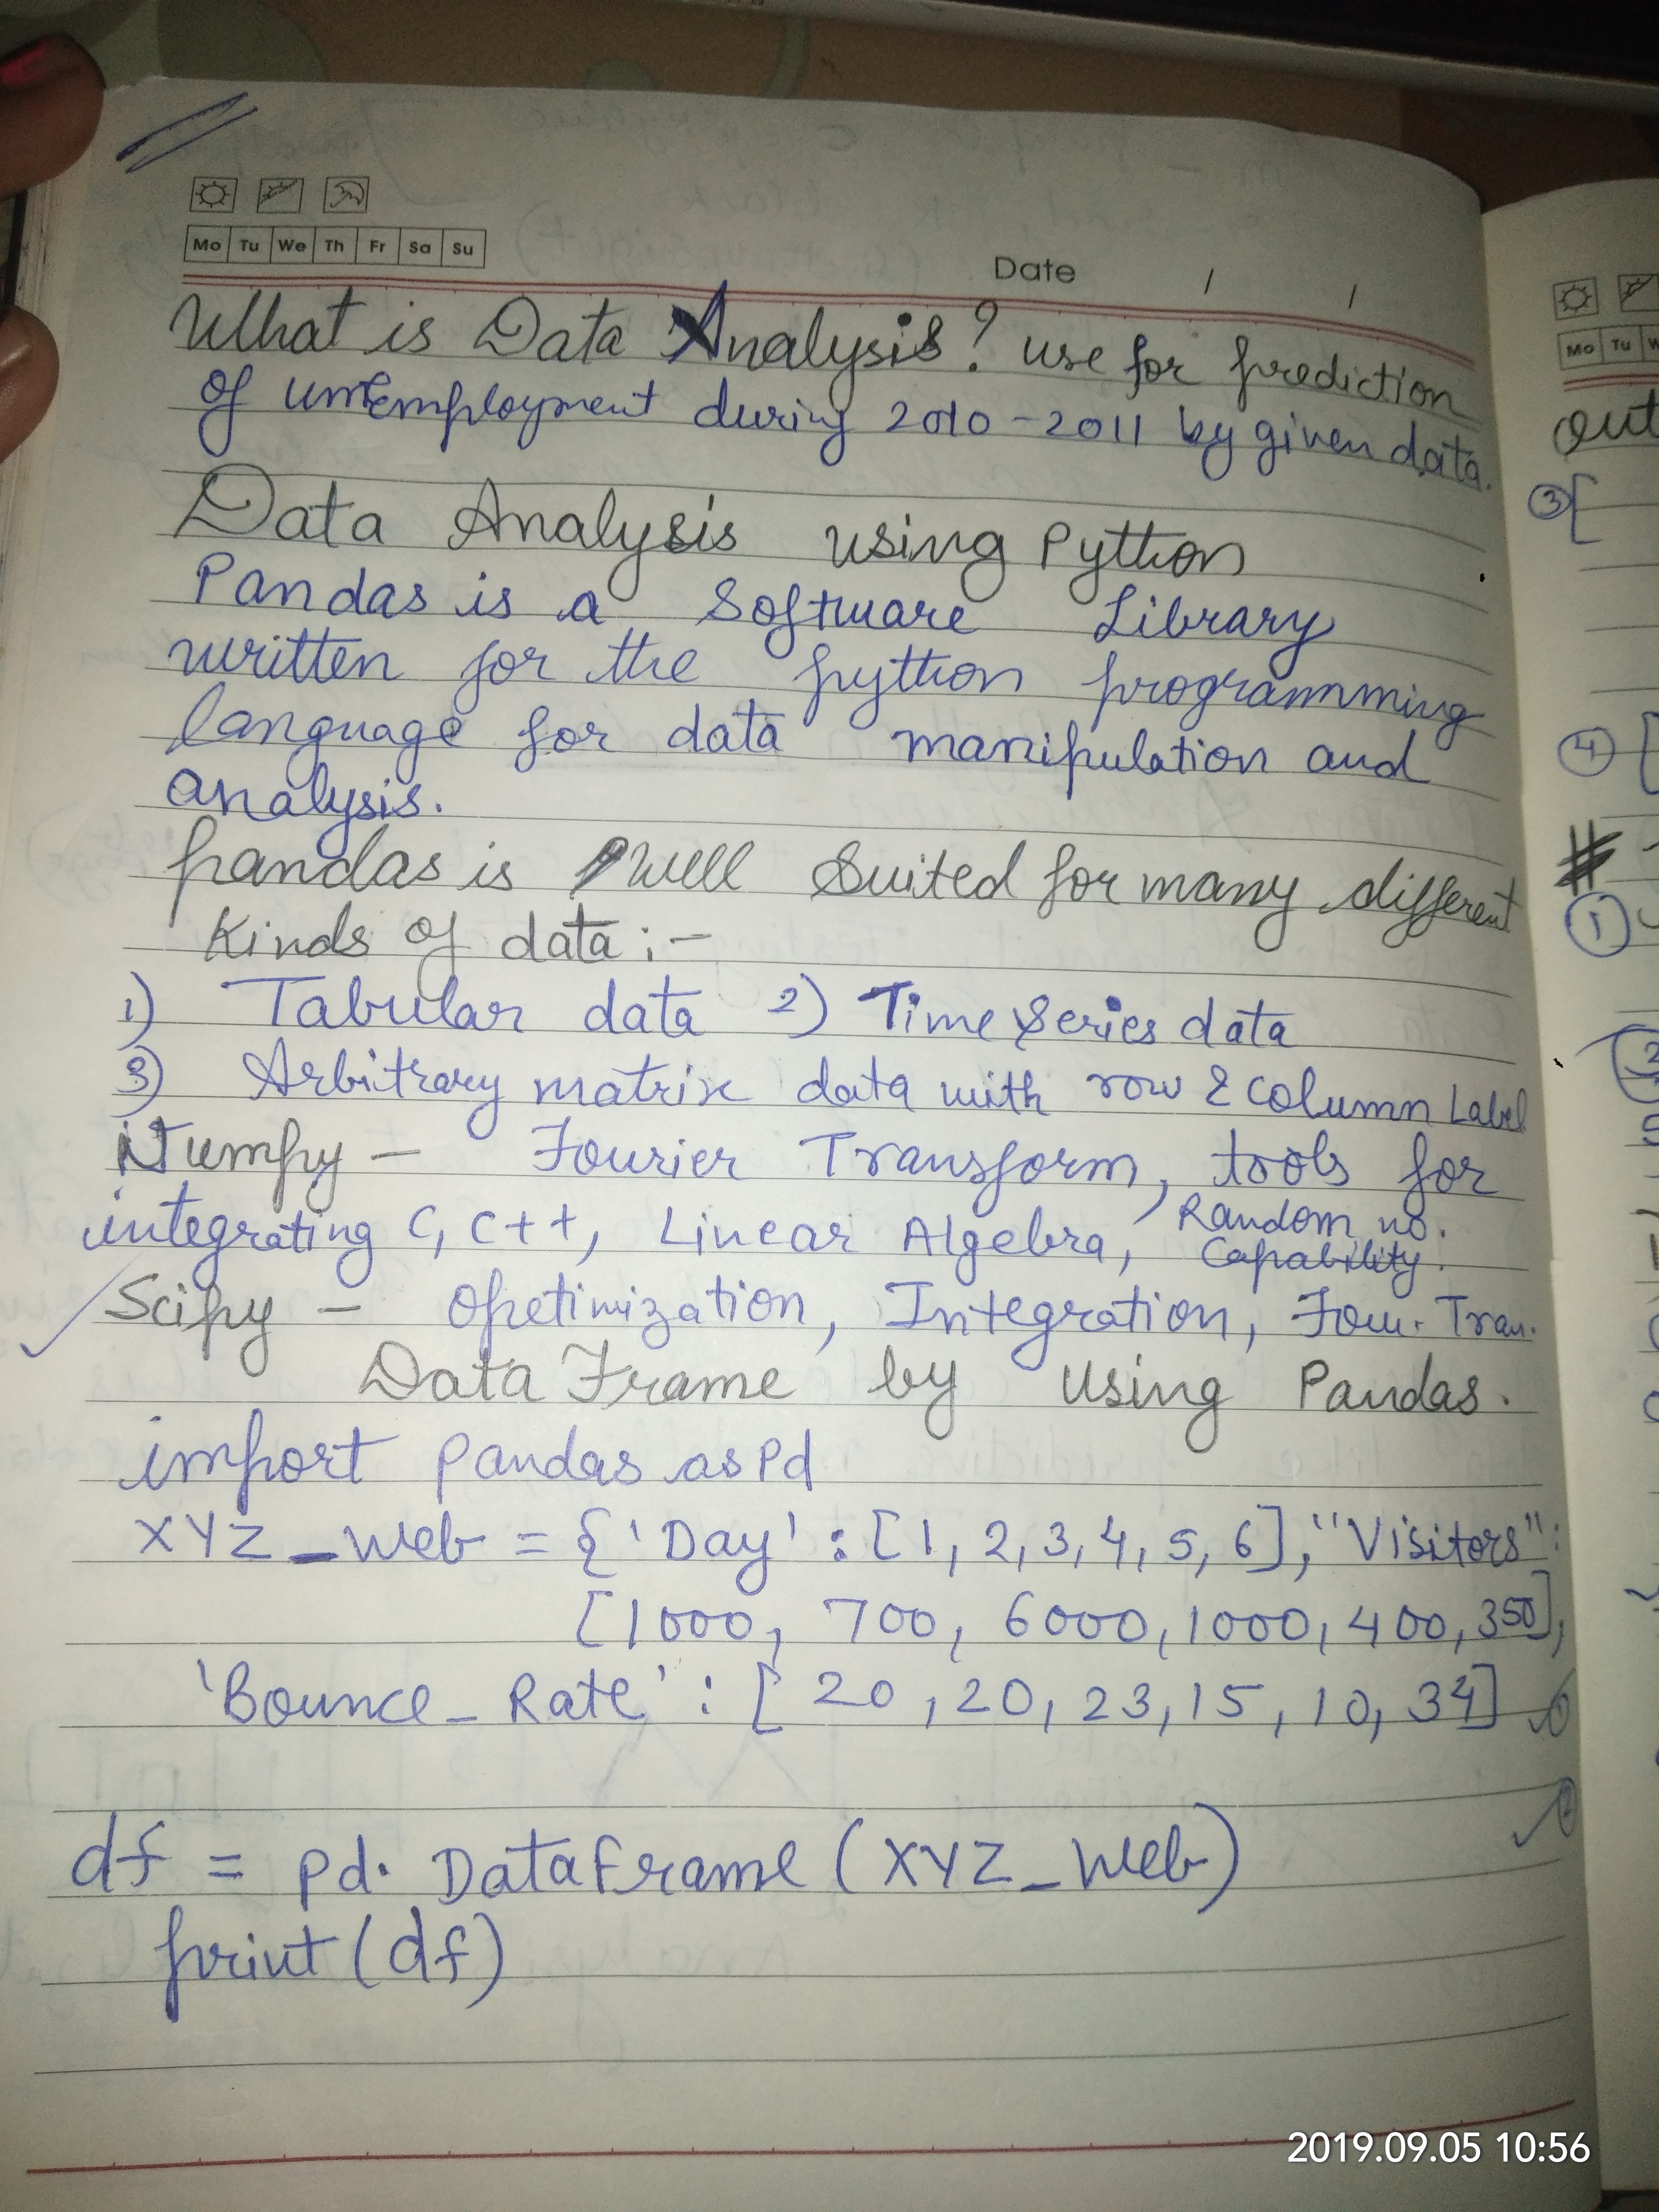 Mo Tu We Th Fr Sa Su
Date / /
What is Data Analysis? use for prediction
of unemployment during 2010-2011 by given data.
Data Analysis using Python
Pandas is a Software Library
written for the python programming
language for data manipulation and
analysis.
pandas is well suited for many different
kinds of data :-
1) Tabular data 2) Time Series data
3) Arbitrary matrix data with row & column Label
Numpy - Fourier Transform, tools for
integrating C, C++, Linear Algebra, Random no.
Capability.
Scipy - Opetimization, Integration, Fou. Tran.
DataFrame by using Pandas.
import pandas as Pd
XYZ_web = {'Day' : [1, 2, 3, 4, 5, 6], "Visitors":
[1000, 700, 6000, 1000, 400, 350],
'Bounce_Rate' : [20, 20, 23, 15, 10, 34]
df = pd. DataFrame (XYZ_web)
print (df)
Mo Tu W
out
3 [
4 [
#
1
2
2019.09.05 10:56